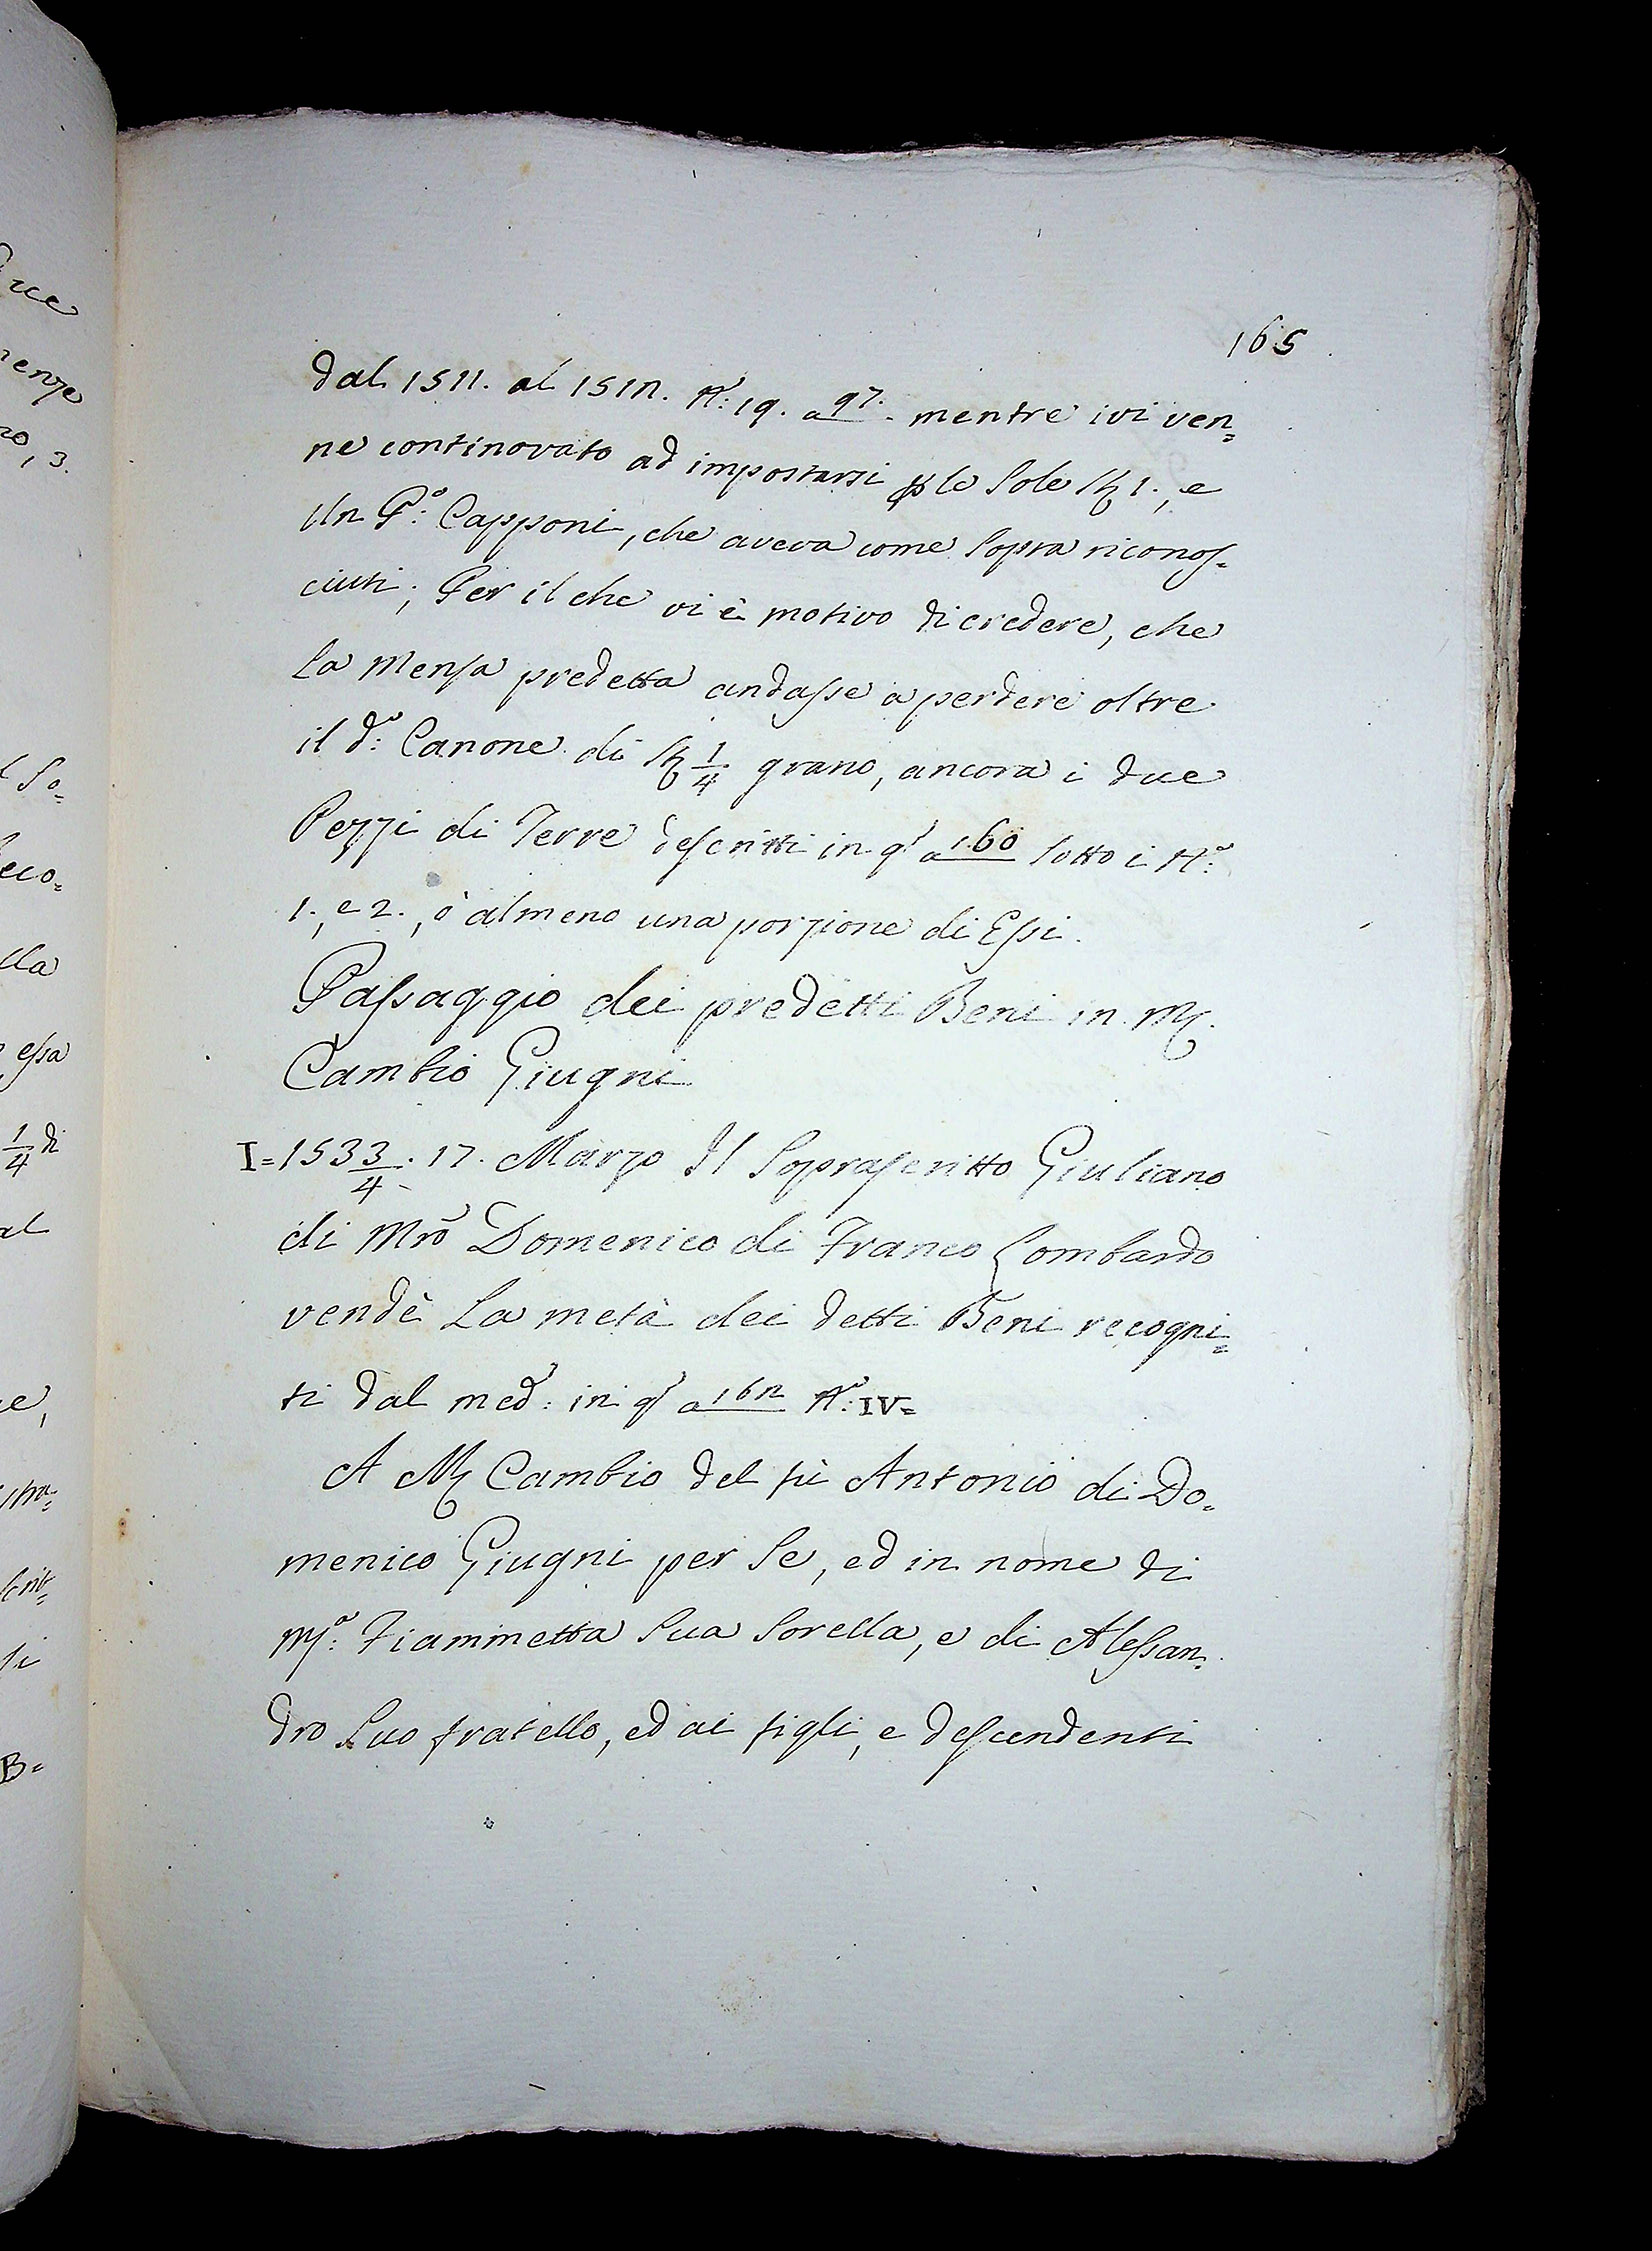 165
dal 1511. al 1512. N.º: 19. a 97. mentre ivi ven=
ne continovato ad impostarsi p le sole st 1., e
Un P.º: Capponi, che aveva come sopra riconos=
ciuti; Per il che vi è motivo di credere, che
La Mensa predetta andasse a perdere oltre
il d.º: Canone di st 1/4 grano, ancora i due
Pezzi di Terre descritti in q.º a 160 sotto i N.º:
1., e 2., ò almeno una porzione di Essi.
Passaggio dei predetti Beni in M.
Cambio Giugni
I=1533/4. 17. Marzo Il Soprascritto Giuliano
di Mrõ Domenico di Franco Lombardo
vendè La metà dei detti Beni recogni=
ti dal med.º: in q.º a 162 N.º: IV=
A M. Cambio del fù Antonio di Do=
menico Giugni per Se, ed in nome di
M.ª: Fiammetta Sua Sorella, e di Alessan=
dro Suo fratello, ed ai figli, e descendenti